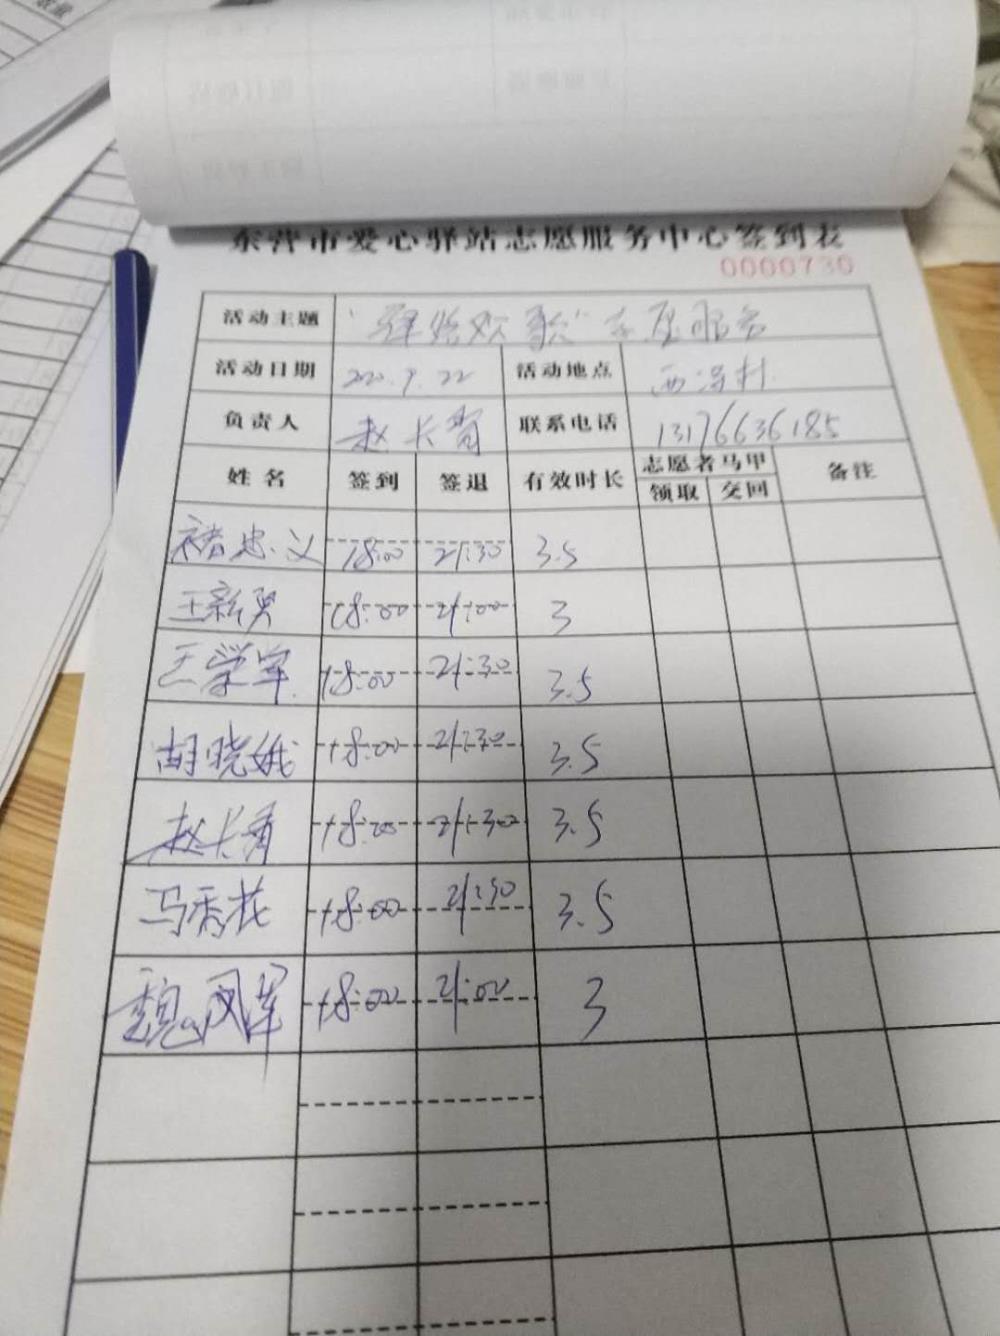 东营市爱心驿站志愿服务中心签到表
0000730
活动主题 "驿路欢歌"志愿服务
活动日期 2020.9.22 活动地点 西冯村
负责人 赵长青 联系电话 13176636185
姓名 签到 签退 有效时长 志愿者马甲 备注
领取 交回
褚忠义 18:00 21:30 3.5
王新勇 18:00 21:00 3
王学军 18:00 21:30 3.5
胡晓娥 18:00 21:30 3.5
赵长青 18:00 21:30 3.5
马秀花 18:00 21:30 3.5
魏凤军 18:00 21:00 3